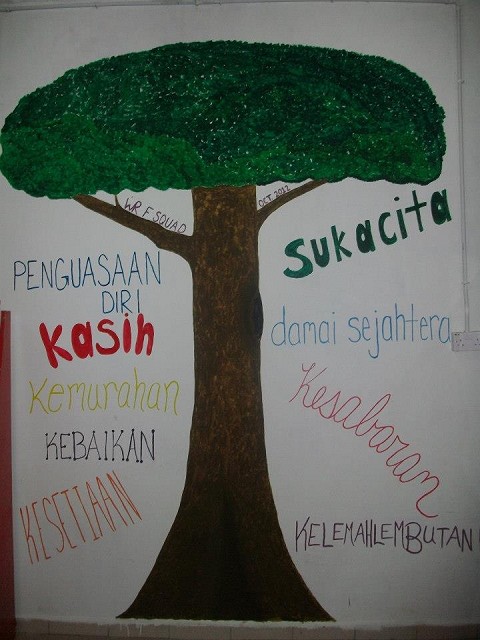 WR F SQUAD
OCT. 2012
PENGUASAAN
DIRI
Kasih
Kemurahan
KEBAIKAN
KESETIAAN
sukacita
damai sejahtera
Kesabaran
KELEMAHLEMBUTAN